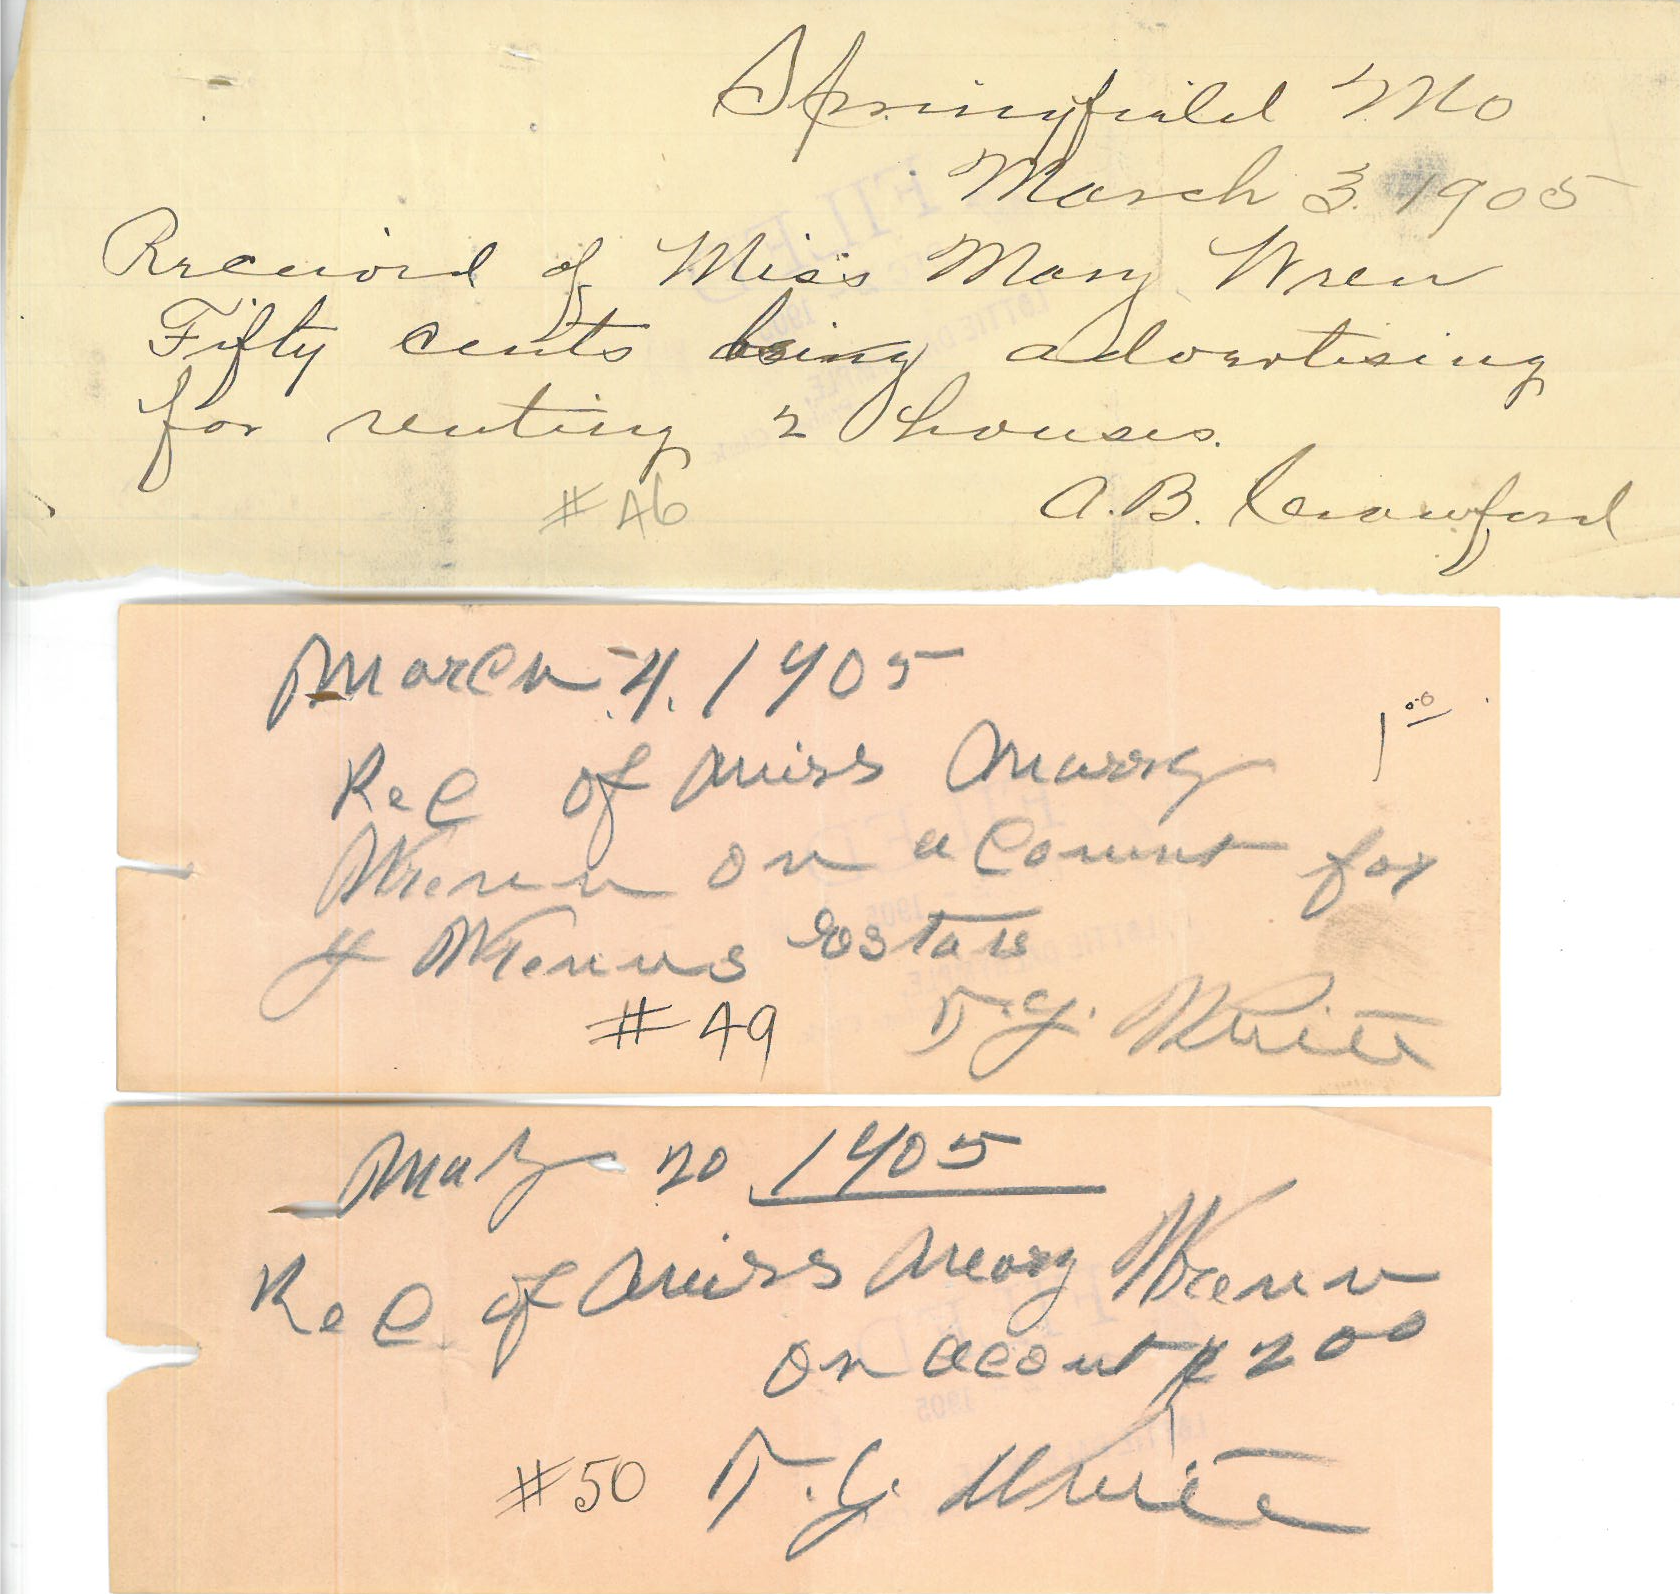 Springfield Mo
March 3. 1905
Received of Miss Mary Wren
Fifty cents being advertising
for renting 2 houses.
A.B. Crawford
#46
March 4. 1905
1 00
Rec of Miss Marry
Wrenn on acount for
J Wrenns Estate
#49 T.J. White
May 20 1905
Rec of Miss Meary Wrenn
on acount $ 200
#50 T.J. White
FILED
1905
FILED
1905
FILED
1905